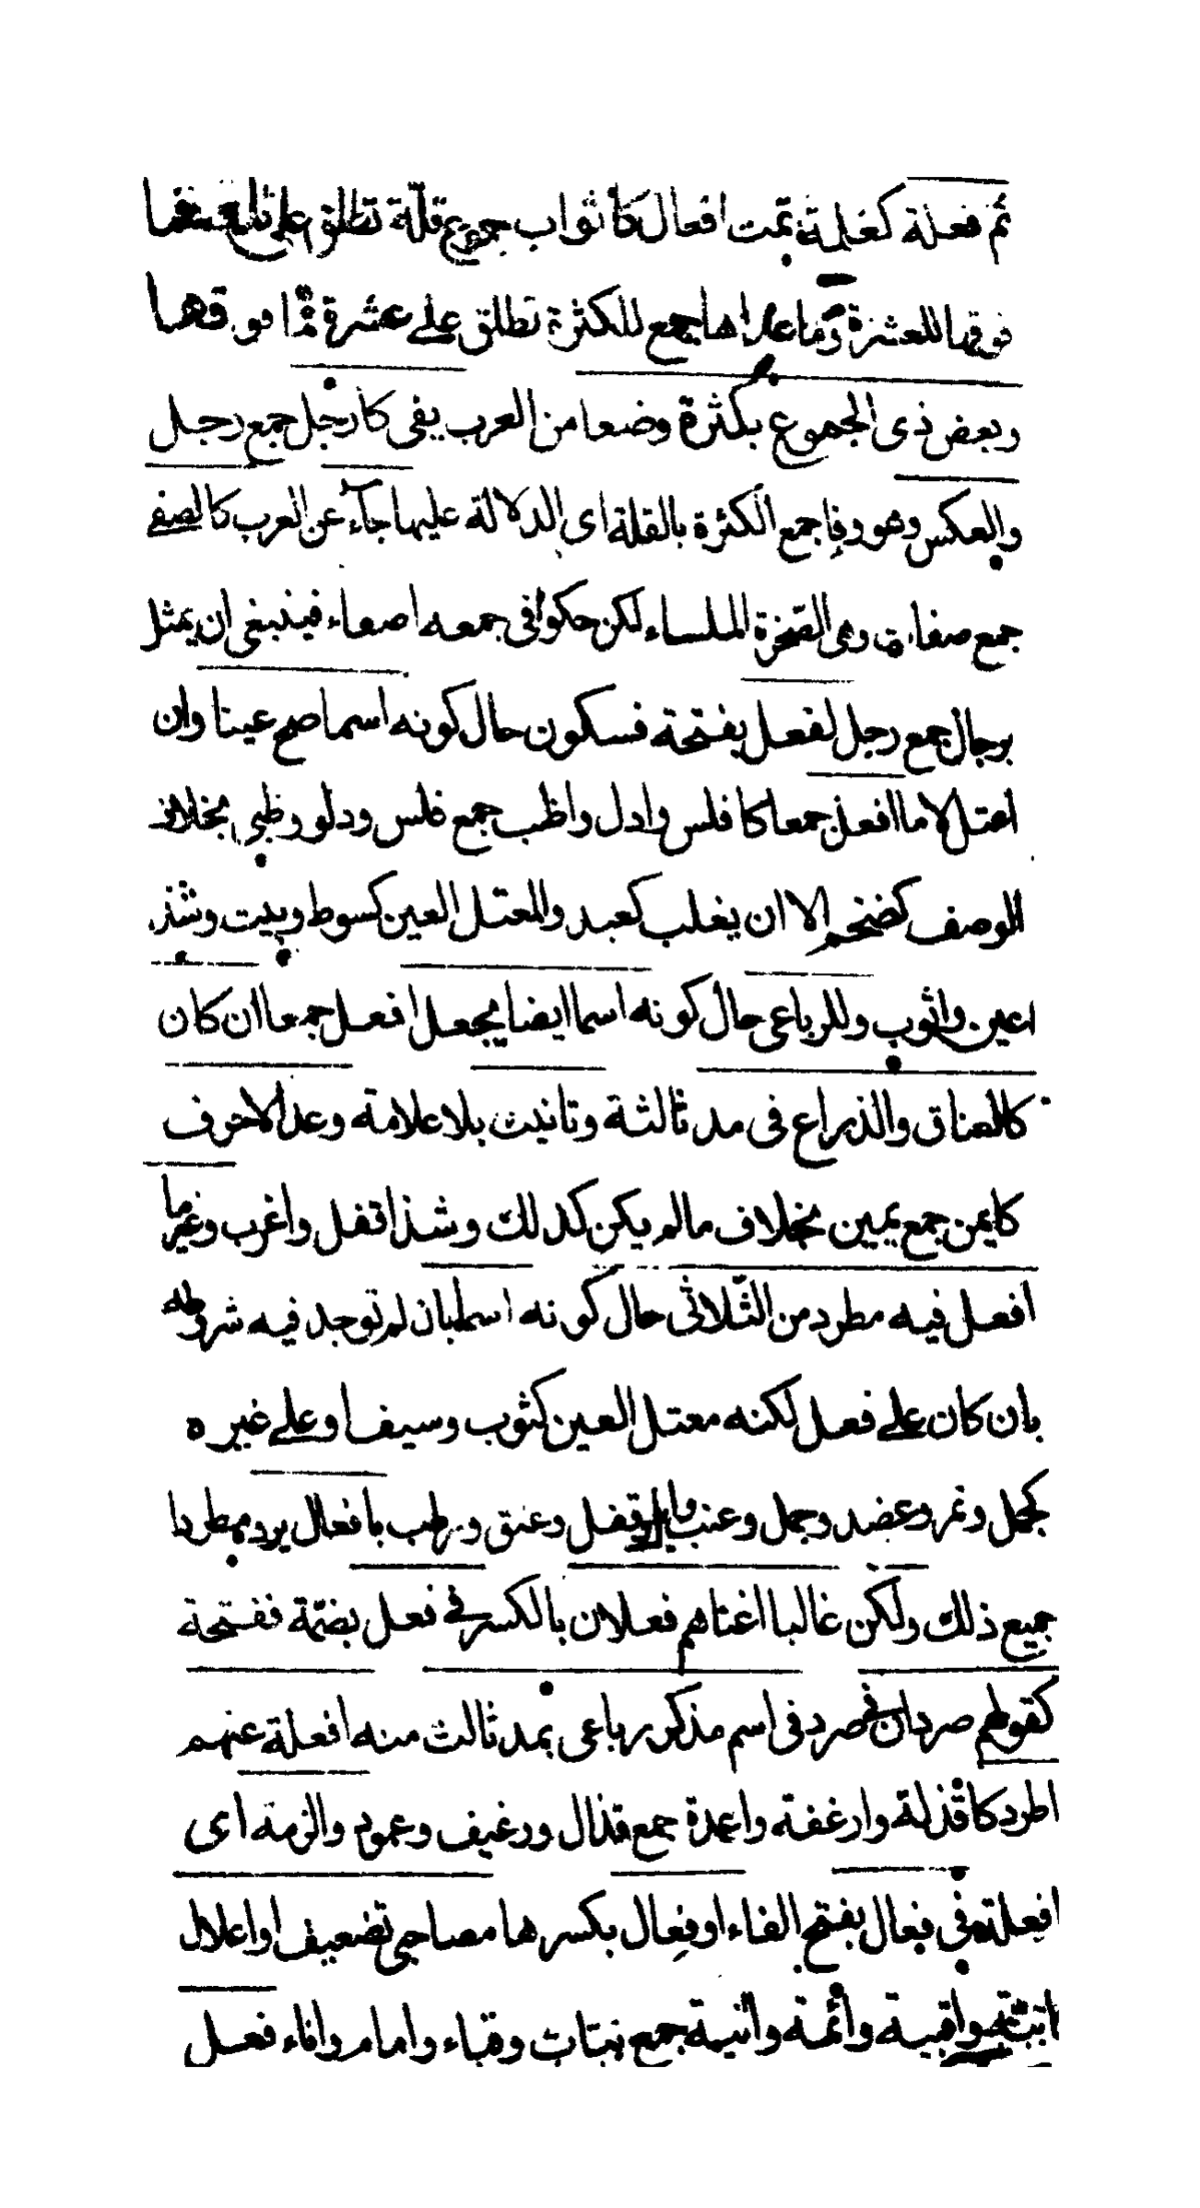 ثم فعلة كغلمة ثمت افعال كأثواب جموع قلة تطلق على ثلثة فما
فوقها للعشرة وما عداها جمع للكثرة تطلق على عشرة فما فوقها
وبعض ذى الجموع بكثرة وضعا من العرب يفى كأرجل جمع رجل
والعكس وهو وفا جمع الكثرة بالقلة اى الدلالة عليها جآء عن العرب كالصفى
جمع صفاة وهى الصخرة الملساء لكن حكوا فى جمعه اصفاء فينبغى ان يمثل
برجال جمع رجل لفعل بفتحة فسكون حال كونه اسما صح عينا وان
اعتل لاما افعل جمعا كافلس وادل واظب جمع فلس ودلو وظبى بخلاف
الوصف كضخم الا ان يغلب كعبد والمعتل العين كسوط وبيت وشذ
اعين واثوب وللرباعى حال كونه اسما ايضا يجعل افعل جمعا ان كان
كالعناق والذراع فى مد ثالثة وتانيث بلا علامة وعد الاحرف
كايمن جمع يمين بخلاف ما لم يكن كذلك وشذ اقفل واغرب وغير ما
افعل فيه مطرد من الثلاثى حال كونه اسما بان لم توجد فيه شروطه
بان كان على فعل لكنه معتل العين كثوب وسيف او على غيره
كجمل ونمر وعضد وحمل وعنب وابل وقفل وعنق ورطب بافعال يرد مطردا
جميع ذلك ولكن غالبا اغناهم فعلان بالكسر فى فعل بضمة ففتحة
كقولهم صردان فى صرد فى اسم مذكر رباعى بمد ثالث منه افعلة عنهم
اطرد كاقذلة وارغفة واعمدة جمع قذال ورغيف وعمود والزمه اى
افعلة فى فعال بفتح الفاء او فعال بكسرها مصاحبى تضعيف او اعلال
ابتتة واقبية وأئمة وآنية جمع بتات وقباء وامام واناء فعل